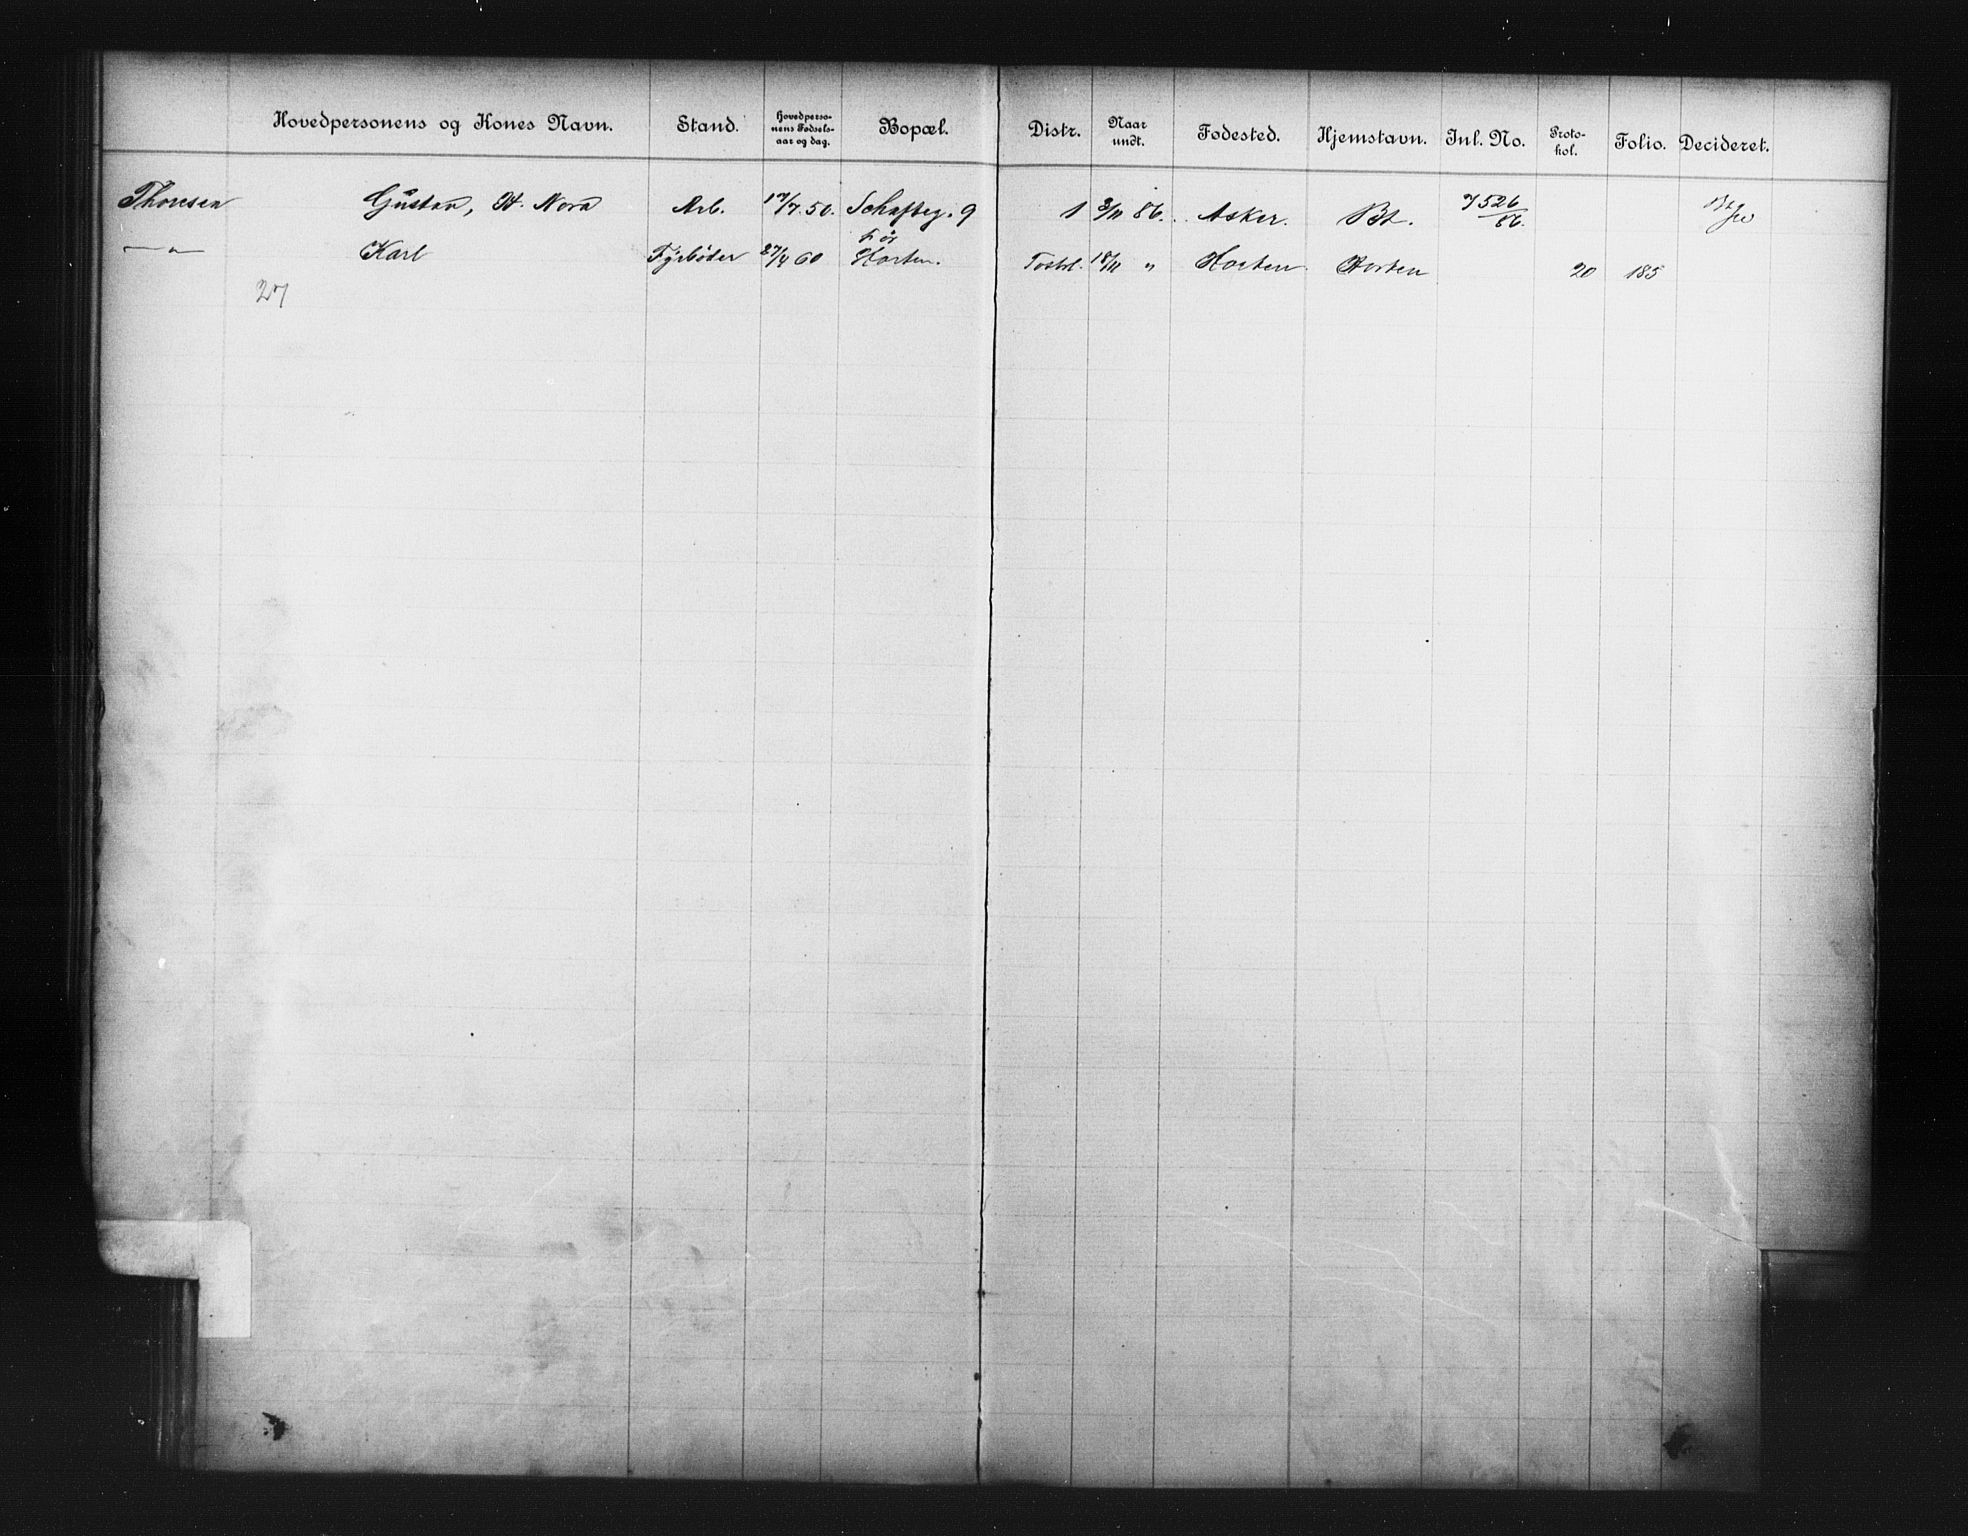 Hovedpersonens og Kones Navn. Stand. Hovedperso-nens Fødsels-aar og dag. Bopæl. Distr. Naar undt. Fødested. Hjemstavn. Inl. No. Proto-kol. Folio. Decideret.
Thoresen Gustav, H. Nora Arb. 17/7.50. 9 1 3/11 86. Asker. Bt. 526/86.
— " — Karl Fyrbøder 27/4 60 Før Horten. 18/11 " Horten. Horten 20 185
27